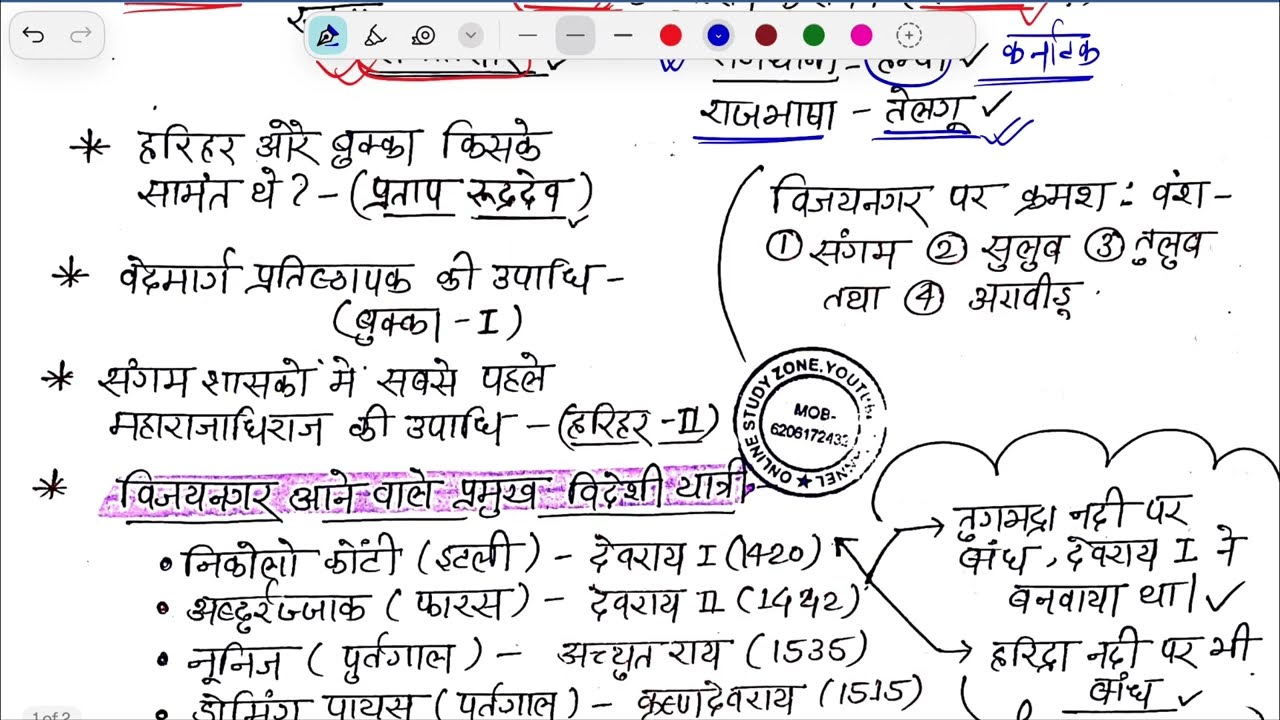 कर्नाटक
राजधानी - हम्पी
राजभाषा - तेलगू
* हरिहर और बुक्का किसके
सामंत थे? - (प्रताप रूद्रदेव)
* वेदमार्ग प्रतिष्ठापक की उपाधि -
(बुक्का - I)
* संगम शासकों में सबसे पहले
महाराजाधिराज की उपाधि - (हरिहर - II)
विजयनगर पर क्रमश: वंश -
① संगम ② सुलुव ③ तुलुव
तथा ④ अरावीडू.
ONLINE STUDY ZONE, YOUTUBE CHANNEL
MOB-
* विजयनगर आने वाले प्रमुख विदेशी यात्री -
• निकोलो कोंटी (इटली) - देवराय I (1420)
• अब्दुर्रज्जाक (फारस) - देवराय II (1442)
• नूनिज (पुर्तगाल) - अच्युत राय (1535)
• डोमिंग पायस (पुर्तगाल) - कृष्णदेवराय (1515)
→ तुगभद्रा नदी पर
बांध, देवराय I ने
बनवाया था।
→ हरिद्रा नदी पर भी
बांध
1 of 2